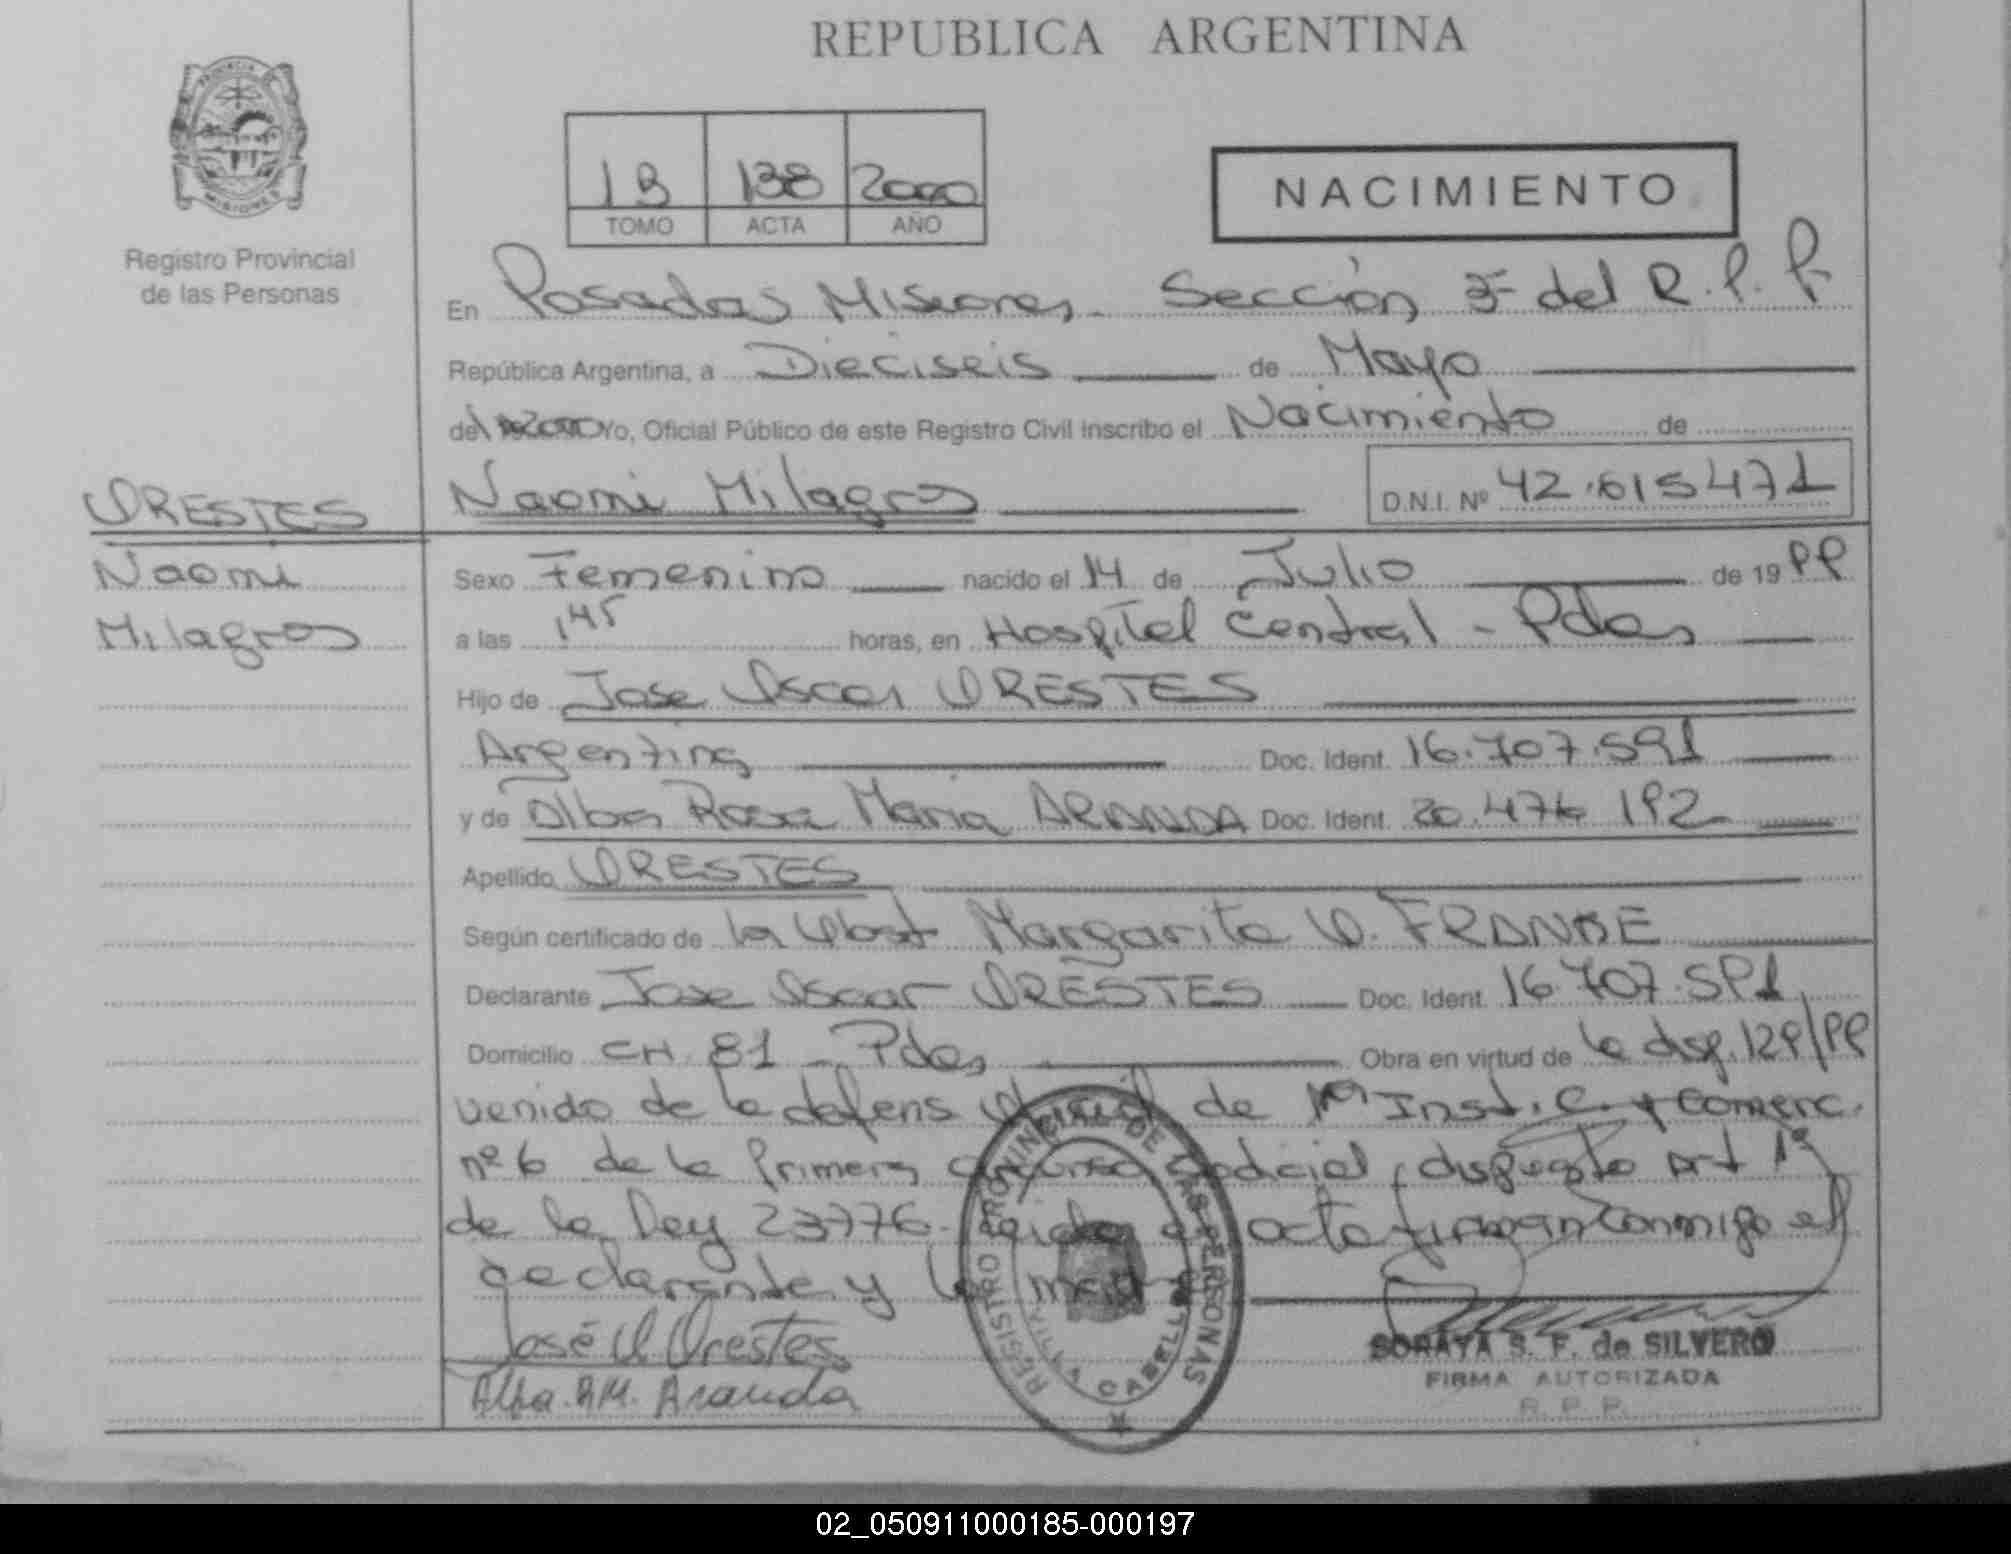 REPUBLICA ARGENTINA
PROVINCIA DE
MISIONES
Registro Provincial
de las Personas
13 138 2000
TOMO ACTA AÑO
NACIMIENTO
En Posadas Misiones - Sección 3ª del R.P.P.
República Argentina, a Dieciseis de Mayo
del 2000 Yo, Oficial Público de este Registro Civil inscribo el Nacimiento de
Naomi Milagros D.N.I. Nº 42.615471
ORESTES
Naomi
Milagros
Sexo Femenino nacido el 14 de Julio de 1999
a las 145 horas, en Hospital Central - Pdas
Hijo de Jose Oscar ORESTES
Argentina Doc. Ident. 16.707.591
y de Alba Rosa Maria ARANDA Doc. Ident. 20.476 192
Apellido ORESTES
Según certificado de la Obst Margarita O.
Declarante Jose Oscar ORESTES Doc. Ident. 16.707.591
Domicilio CH. 81 - Pdas Obra en virtud de la disp. 129/99
venido de la defens oficial de 1ª Inst. C. y Comerc.
nº 6 de la Primera Judicial, dispuesto Art 1º
de la Ley 23776. Leida el acta firman conmigo el
declarante y la madre
José O Orestes
Alba.R.M. Aranda
REGISTRO PROVINCIAL DE LAS PERSONAS
CABELL
SORAYA S. F. de SILVERO
FIRMA AUTORIZADA
R. P. P.
02_050911000185-000197